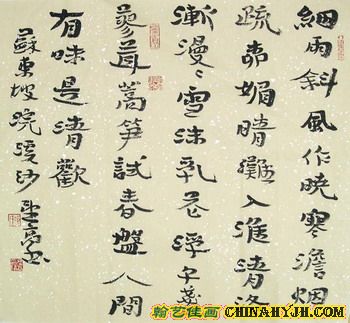 細雨斜風作曉寒澹烟
疏柳媚晴灘入淮清洛
漸漫々雪沫乳花浮午盞
蓼茸蒿笋試春盤人間
有味是清歡
蘇東坡浣溪沙
翰艺佳画 CHINAHYJH.COM